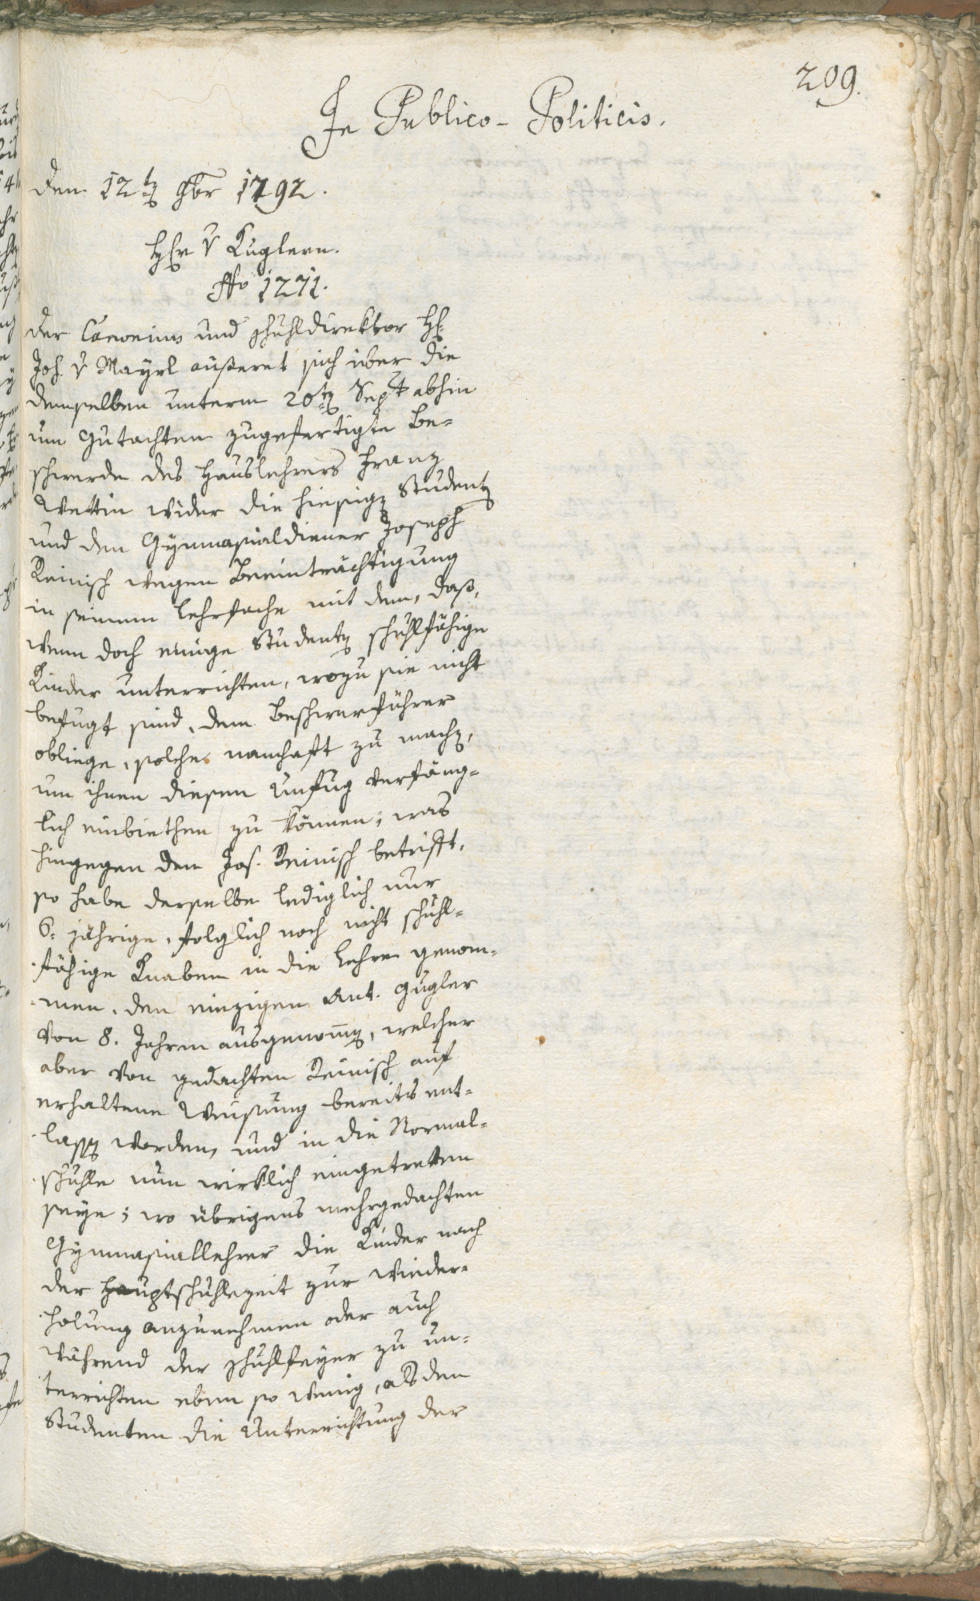 209.
In Publico-Politicis.
den 12t 9br 1792.
H Er v Kuglern.
No 1271.
der Canonius und Schuldirektor H:
Joh. v Mayrl äußeret sich über die
demselben unterm 20t Sept abhin
um Gutachten zugefertigte Be-
schwerde des Hauslehrers Franz
Wettin wider die hiesige Student
und den Gymnasialdiener Joseph
Reinisch wegen Beeinträchtigung
in seinem Lehrfache mit dem, daß,
wenn doch einige Studenten schuhlfähige
Kinder unterrichten, wozu sie nicht
befugt sind, dem Beschwerführer
obliege, solche namhaft zu machen,
um ihnen diesen Unfug verfäng-
lich einbiethen zu können; was
hingegen den Jos. Reinisch betrifft,
so habe derselbe lediglich nur
6. jährige, folglich noch nicht schuhl-
fähige Knaben in die Lehre genom-
men, den einzigen Ant. Gugler
von 8. Jahren ausgenomen, welcher
aber von gedachten Reinisch auf
erhaltene Weisung bereits ent-
lassen worden, und in die Normal-
schuhle nun wirklich eingetretten
seye; wo übrigens mehrgedachten
Gymnasiallehrer die Kinder nach
der Hauptschuhlezeit zur Wieder-
holung anzunehmen oder auch
während der Schuhlfeyer zu un-
terrichten eben so wenig, als den
Studenten die Unterrichtung der